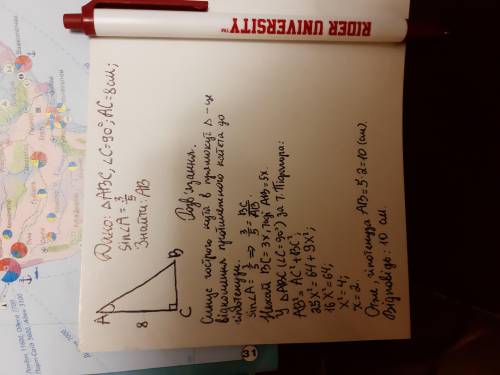 RIDER UNIVERSITY™
Дано: △ABC, ∠C=90°; AC=8см;
sin∠A=3/5
Знайти: AB
A
B
C
8
Розв'язання.
Синус гострого кута в прямокут. △ – це
відношення протилежного катета до
гіпотенузи.
sin∠A = 3/5 ⇒ 3/5 = BC/AB.
Нехай BC=3x, тоді AB=5x.
У △ABC (∠C=90°) за т. Піфагора:
AB²=AC²+BC²;
25x²=64+9x²;
16x²=64;
x²=4;
x=2.
Отже, гіпотенуза AB=5·2=10 (см).
Відповідь: 10 см.
31